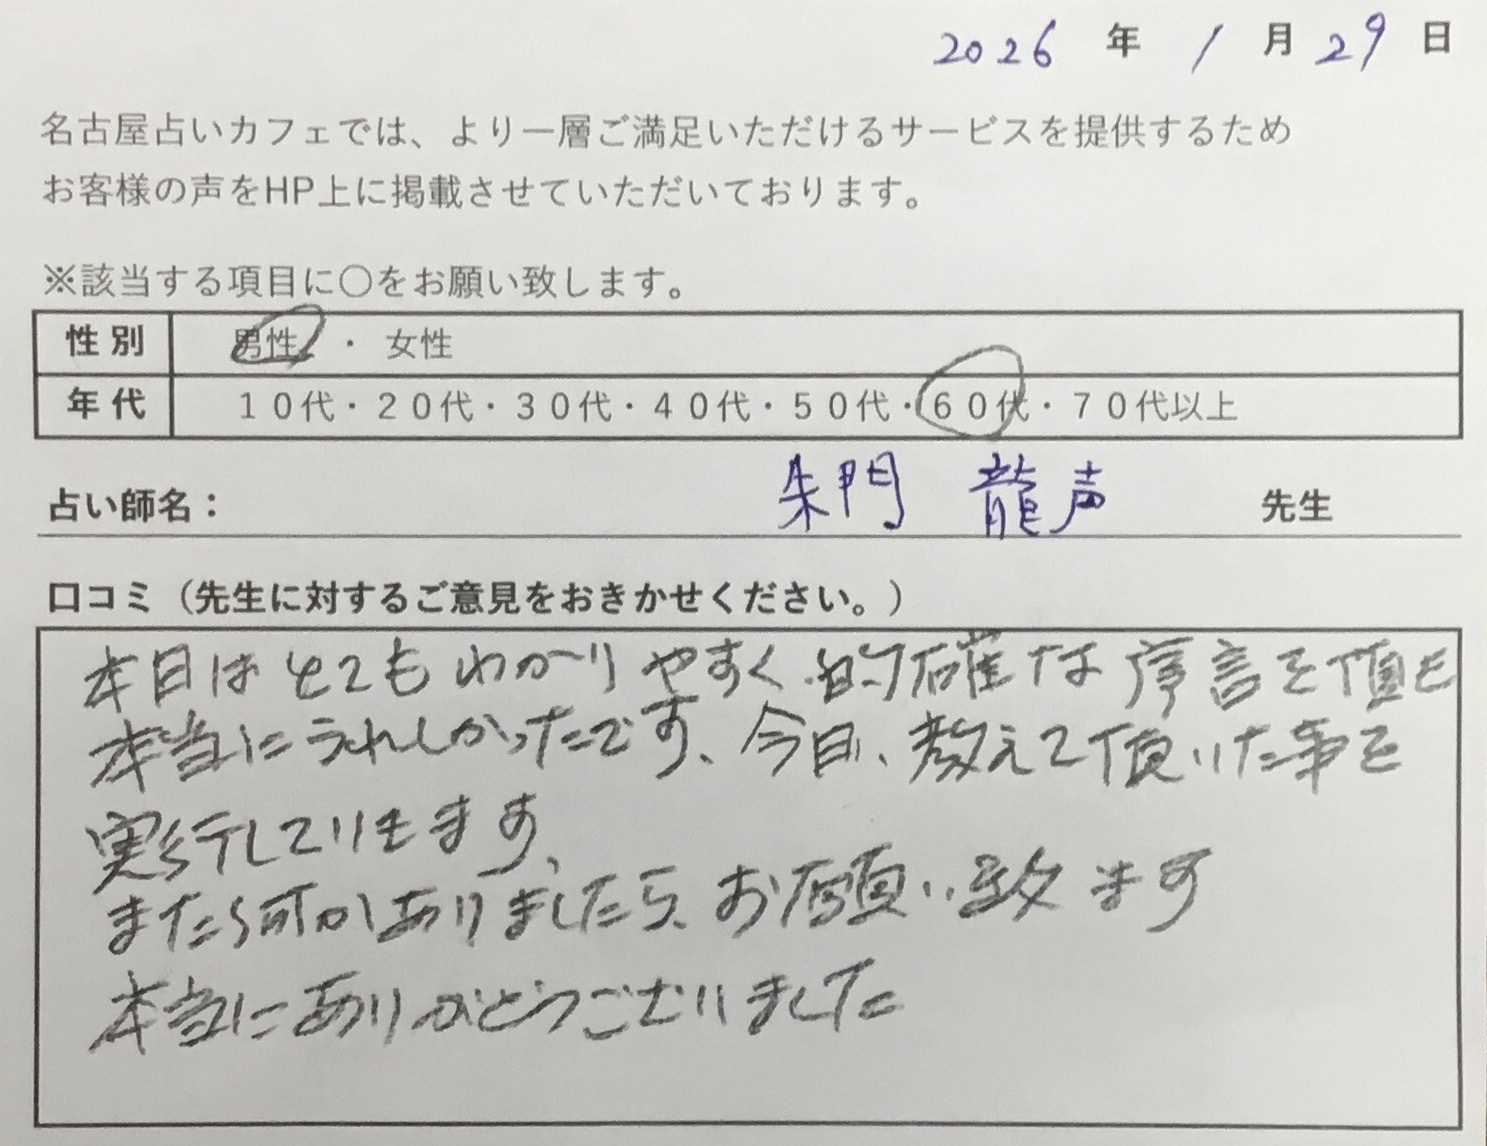 2026 年 1 月 29 日
名古屋占いカフェでは、より一層ご満足いただけるサービスを提供するため
お客様の声をHP上に掲載させていただいております。
※該当する項目に〇をお願い致します。
性別 男性 ・ 女性
年代 １０代・２０代・３０代・４０代・５０代・６０代・７０代以上
占い師名： 朱門 龍声 先生
口コミ（先生に対するご意見をおきかせください。）
本日はとてもわかりやすく的確な 言を頂き
本当にうれしかったです、今日、教えて頂いた事を
実行していきます、
また何かありましたら、お願い致ます
本当にありがとうございました